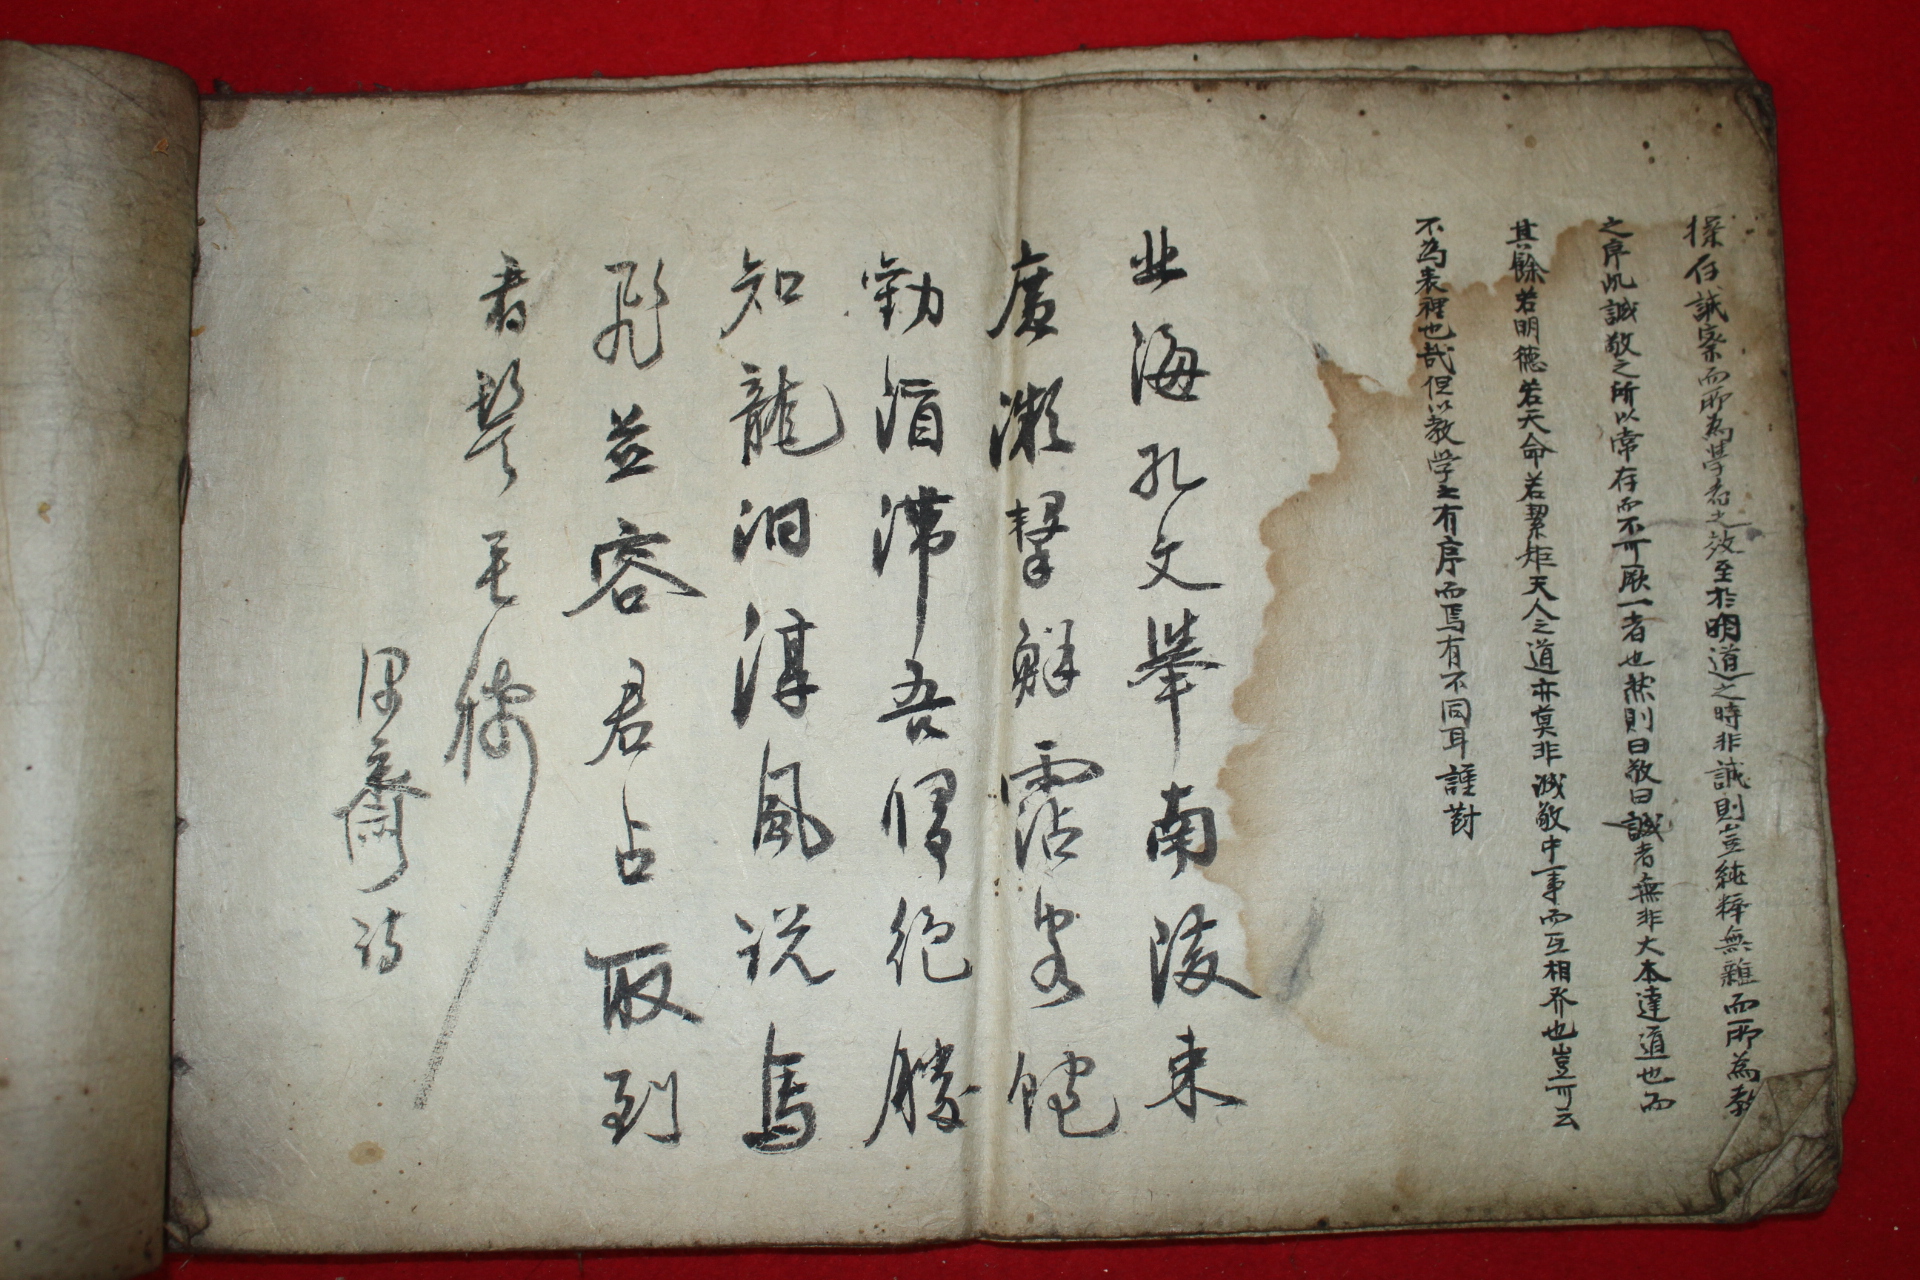 操存誠察而所為學者之效至於明道之時非誠則豈純粹無雜而所為敎
之序此誠敬之所以常存而不可厥一者也然則曰敬曰誠者無非大本達道也而
其餘若明德若天命若絜矩天人之道亦莫非誠敬中一事而互相發也豈可云
不為表裡也哉但以教学之有序而焉有不同耳謹對
北海孔文擧南陵束
廣㵎擊鮮霑客飽
勸酒滯吾絕勝
知龍洞淳風说馬
飛並容君占取到
看鬓毛
齋诗